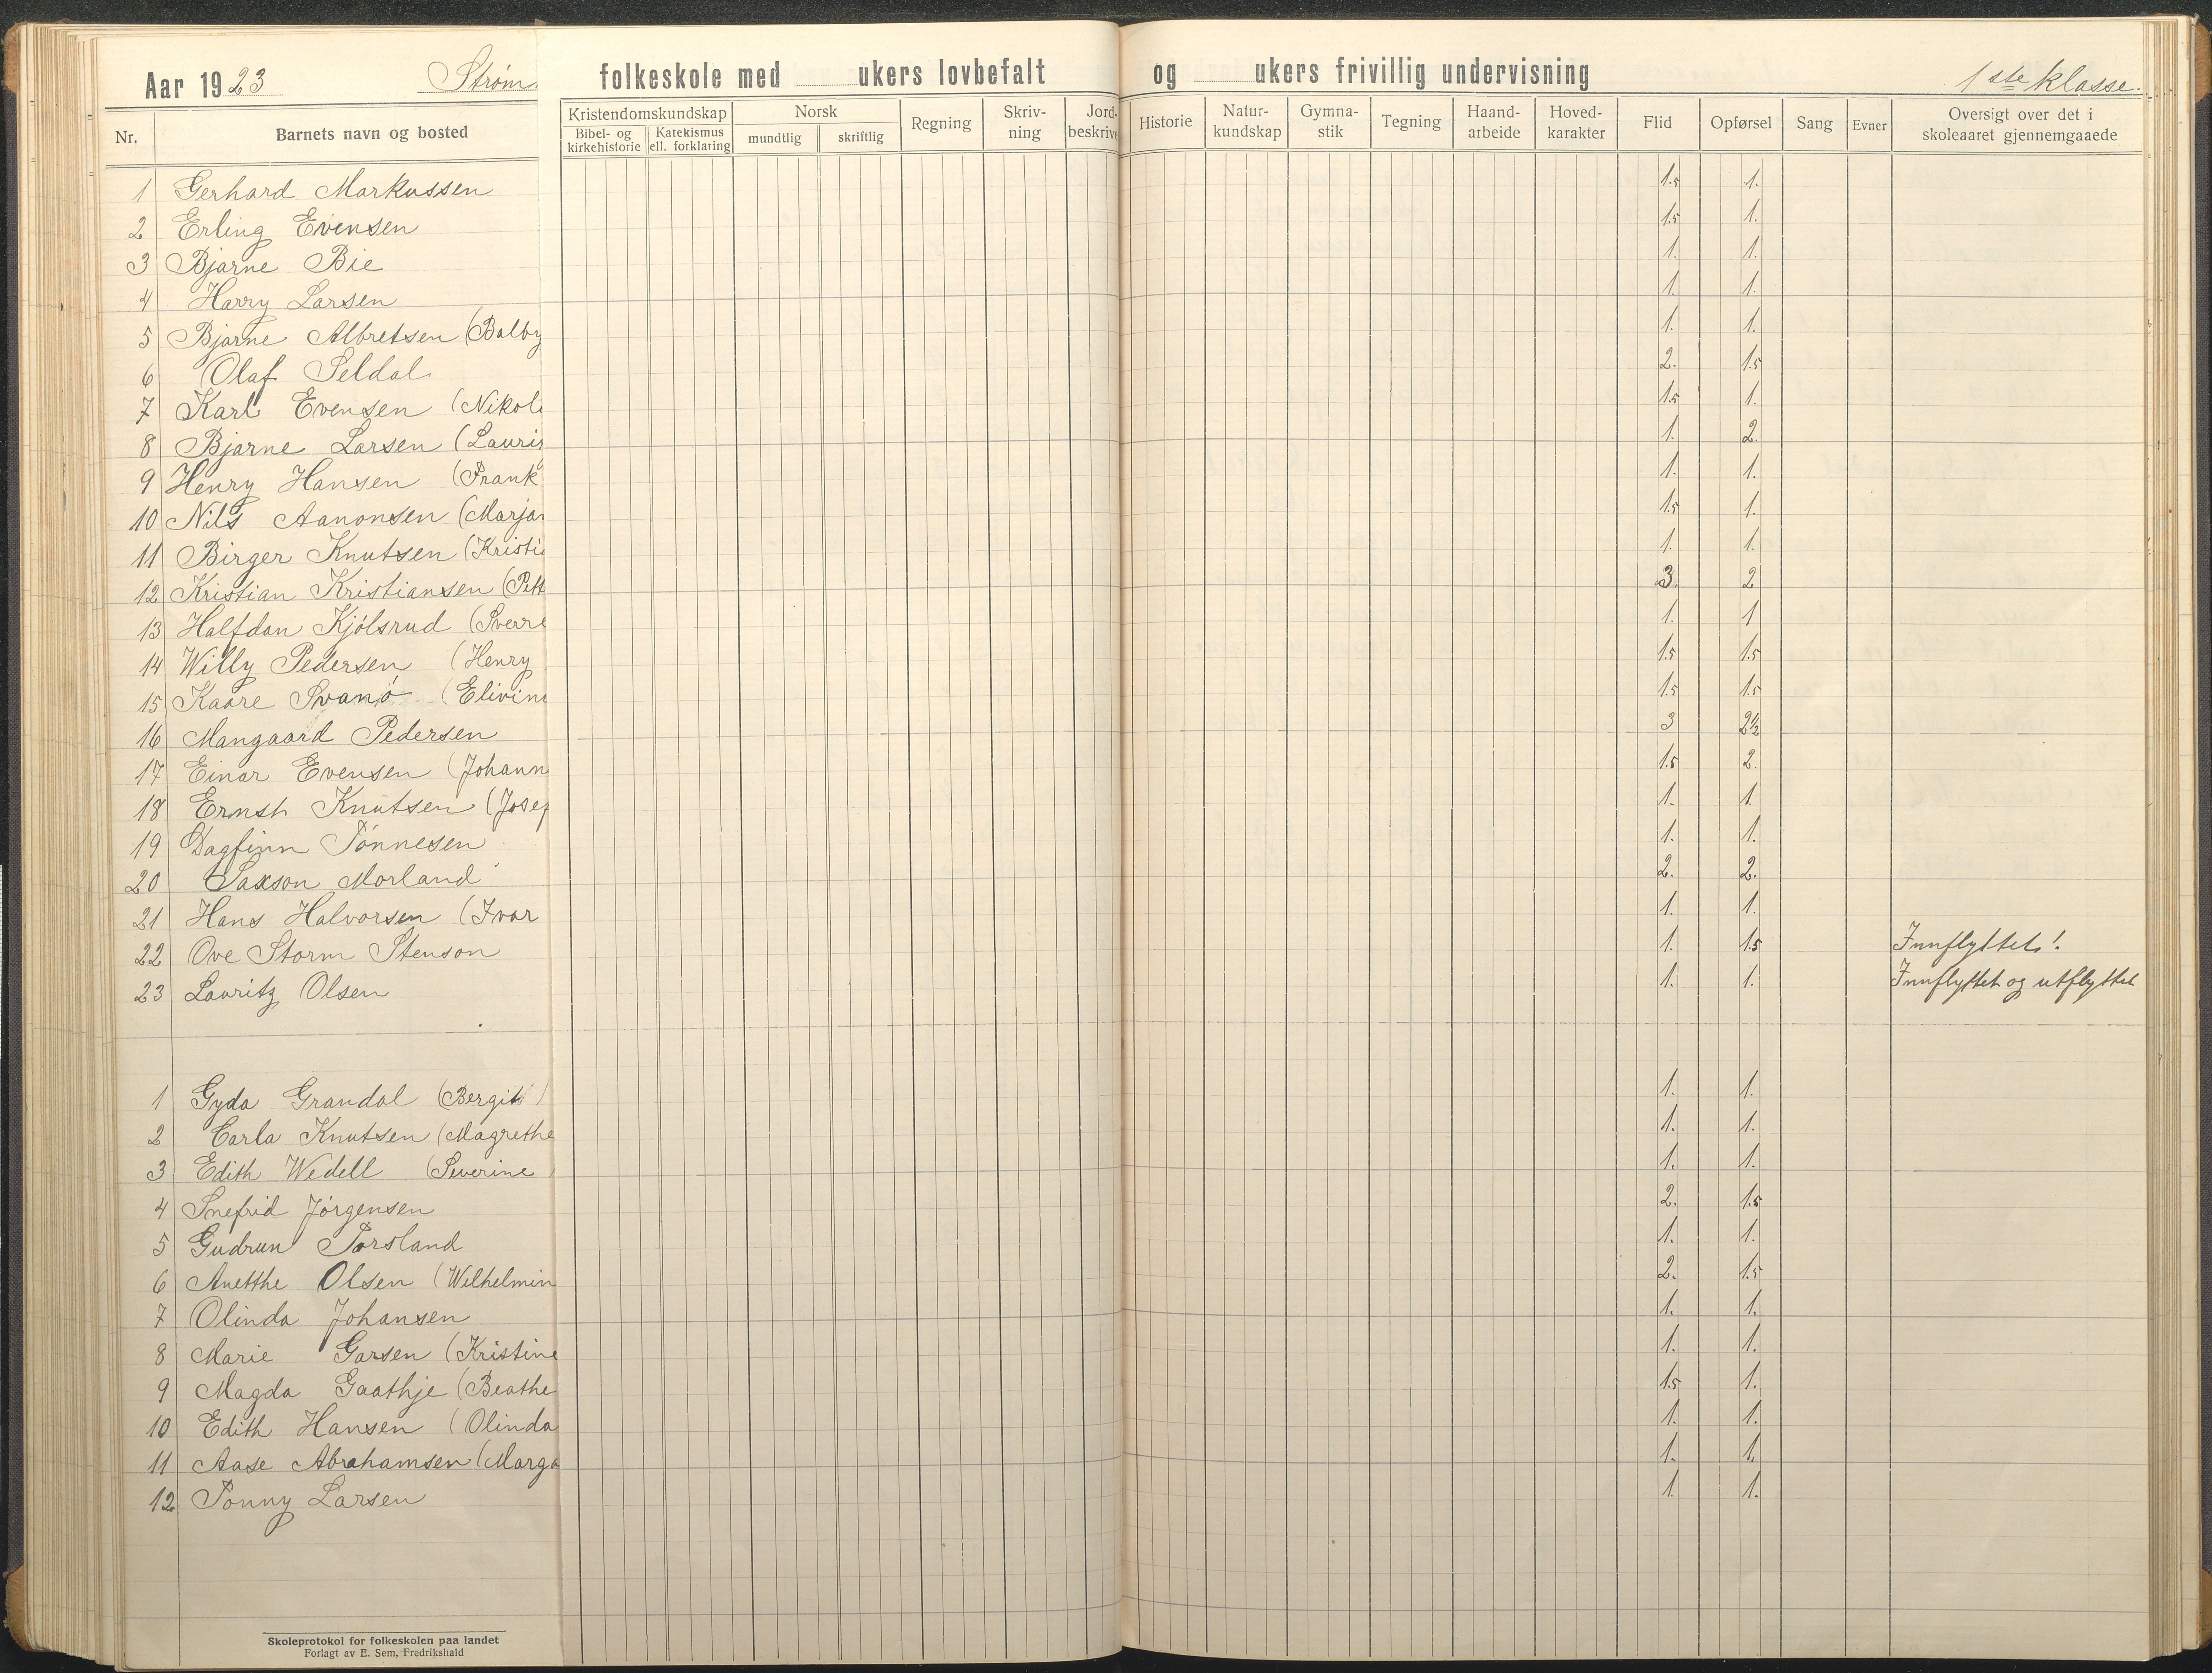 Aar 1923 Strøm folkeskole med ukers lovbefalt og ukers frivillig undervisning 1ste klasse.
Nr. Barnets navn og bosted Kristendomskundskap Bibel- og kirkehistorie Katekismus ell. forklaring Norsk mundtlig skriftlig Regning Skriv-ning Jord-beskrive Historie Natur-kundskap Gymna-stik Tegning Haand-arbeide Hoved-karakter Flid Opførsel Sang Evner Oversigt over det i skoleaaret gjennemgaaede
1 Gerhard Markussen 1.5 1.
2 Erling Evensen 1.5 1.
3 Bjarne Bie 1. 1.
4 Harry Larsen 1. 1.
5 Bjarne Albretsen (Balby 1. 1.
6 Olaf Seldal 2. 1.5
7 Karl Evensen (Nikol 1.5 1.
8 Bjarne Larsen (Lauri 1. 2.
9 Henry Hansen (Frank 1. 1.
10 Nils Aanonsen (Marja 1.5 1.
11 Birger Knutsen (Kristi 1. 1.
12 Kristian Kristiansen (Pett 3. 2
13 Halfdan Kjölsrud (Sverre 1. 1
14 Willy Pedersen (Henry 1.5 1.5
15 Kaare Svanö (Elivin 1.5 1.5
16 Mangaard Pedersen 3 2½
17 Einar Evensen (Johann 1.5 2.
18 Ernst Knutsen (Josep 1. 1.
19 Dagfinn Tönnesen 1. 1.
20 Saxson Morland 2. 2.
21 Hans Halvorsen (Ivar 1. 1.
22 Ove Storm Stenson 1. 1.5 Innflyttet!
23 Lauritz Olsen 1. 1. Innflyttet og utflyttet
1 Gyda Grandal (Bergit) 1. 1.
2 Carla Knutsen (Magrethe 1. 1.
3 Edith Wedell (Severine 1. 1.
4 Snefrid Jörgensen 2. 1.5
5 Gudrun Torsland 1. 1.
6 Anetthe Olsen (Wilhelmin 2. 1.5
7 Olinda Johansen 1. 1.
8 Marie Garsen (Kristine 1. 1.
9 Magda Gaathje (Beathe 1.5 1.
10 Edith Hansen (Olinda 1. 1.
11 Aase Abrahamsen (Marga 1. 1.
12 Tonny Larsen 1. 1.
Skoleprotokol for folkeskolen paa landet
Forlagt av E. Sem, Fredrikshald